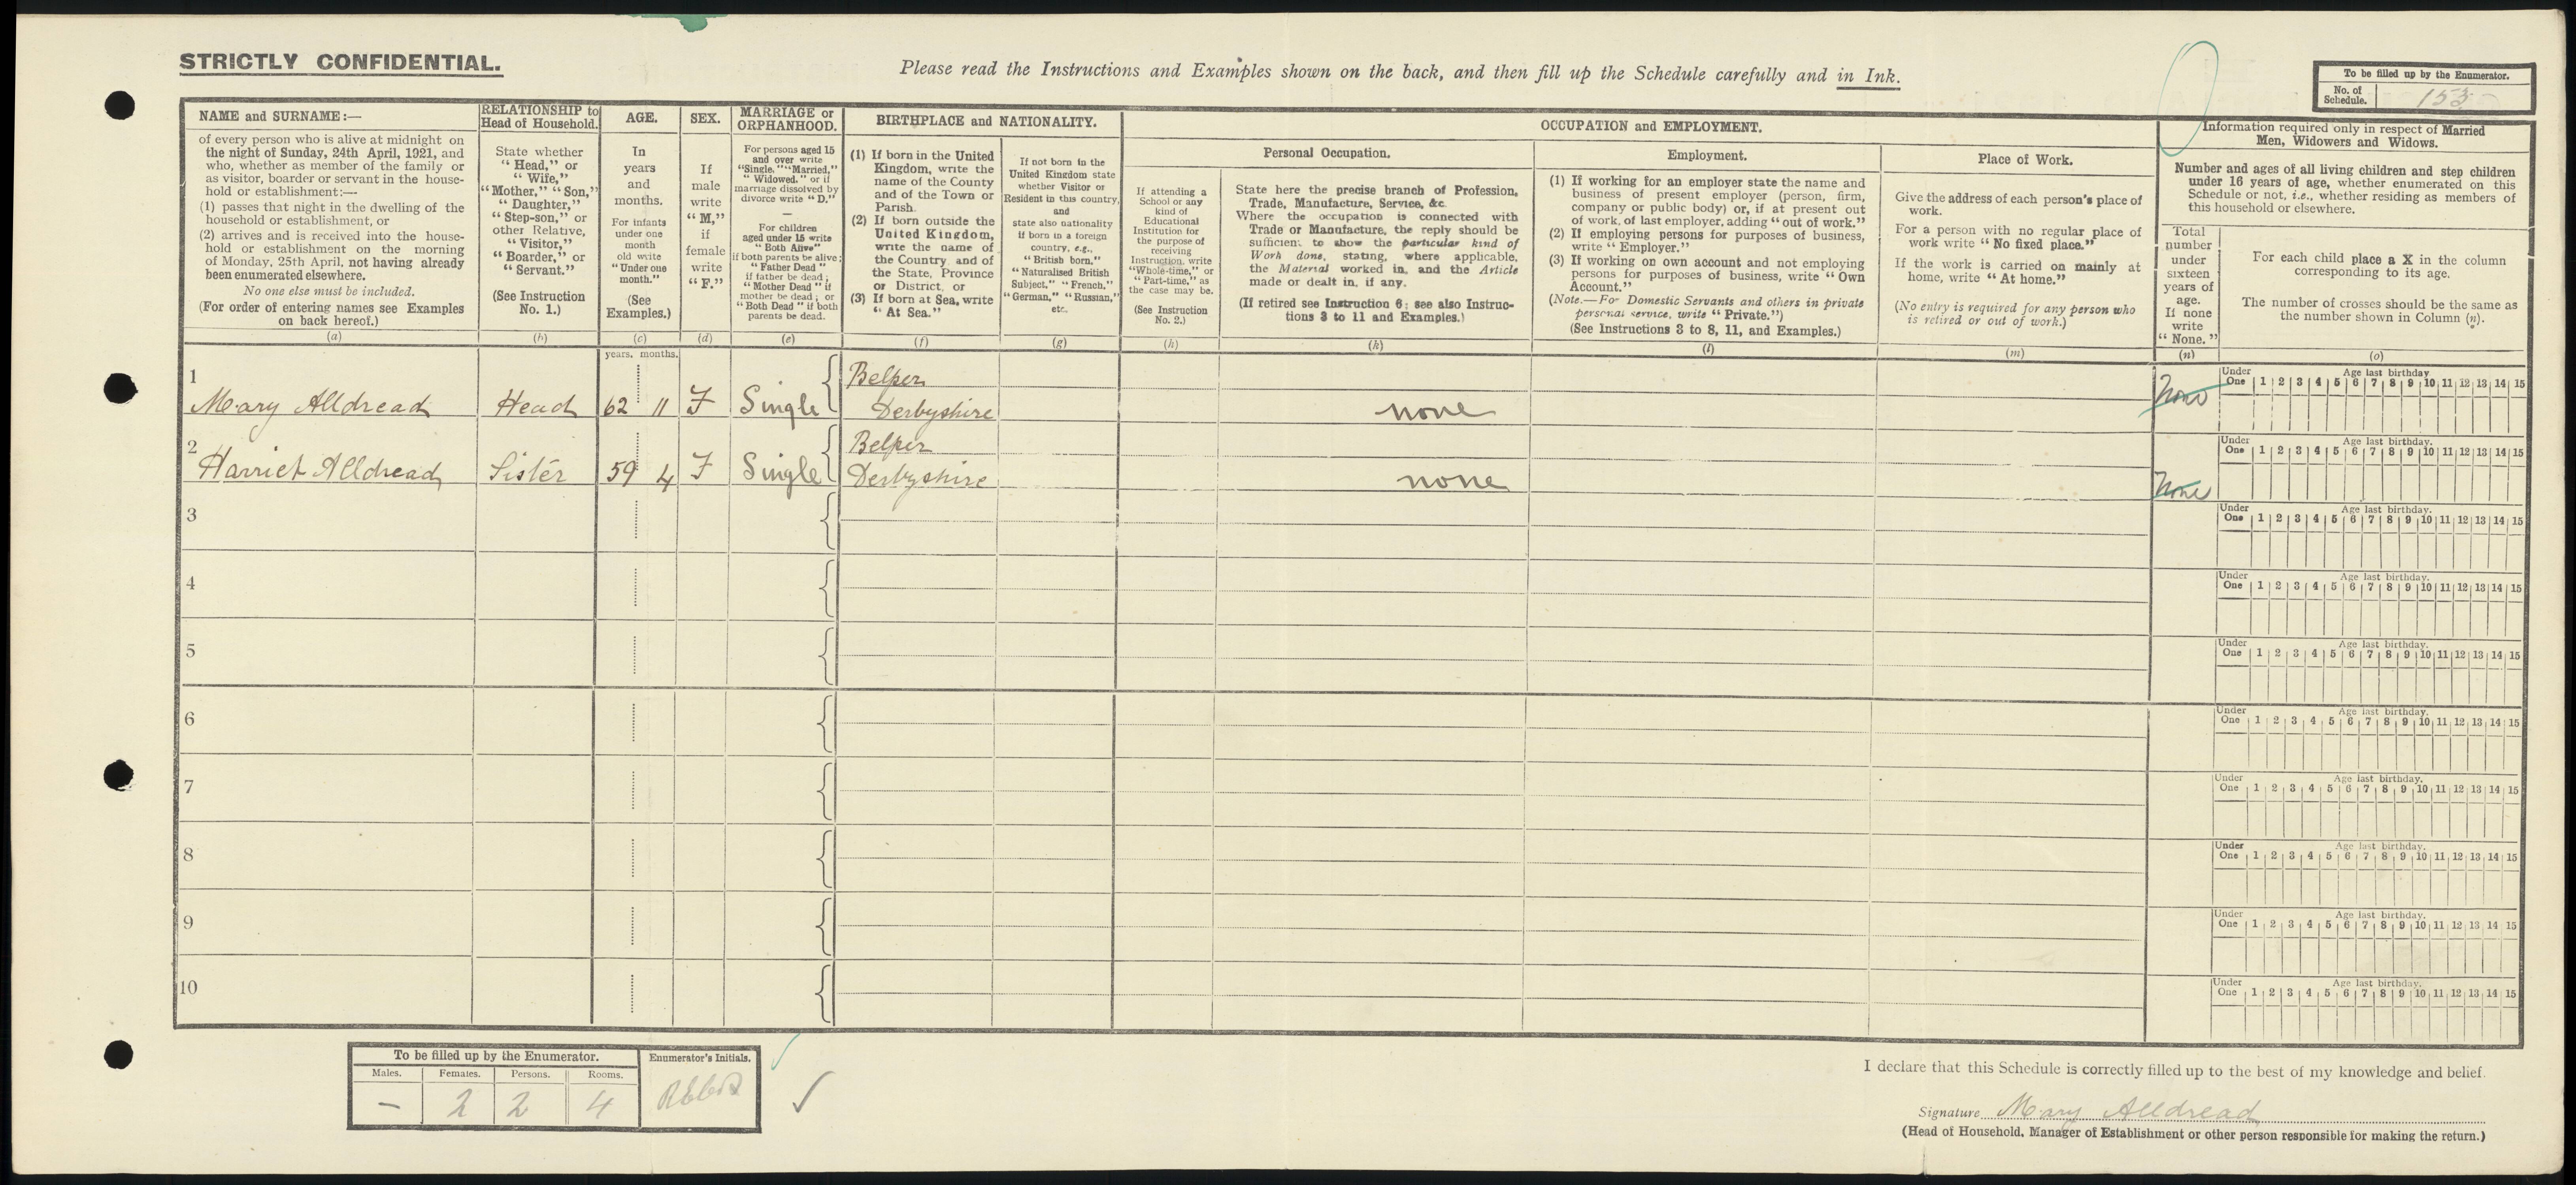 STRICTLY CONFIDENTIAL.
Please read the Instructions and Examples shown on the back, and then fill up the Schedule carefully and in Ink.
To be filled up by the Enumerator.
No. of Schedule. 153
NAME and SURNAME:—
of every person who is alive at midnight on
the night of Sunday, 24th April, 1921, and
who, whether as member of the family or
as visitor, boarder or servant in the house-
hold or establishment:—
(1) passes that night in the dwelling of the
household or establishment, or
(2) arrives and is received into the house-
hold or establishment on the morning
of Monday, 25th April, not having already
been enumerated elsewhere.
No one else must be included.
(For order of entering names see Examples
on back hereof.)
(a)
RELATIONSHIP to
Head of Household.
State whether
"Head," or
"Wife,"
"Mother," "Son,"
"Daughter,"
"Step-son," or
other Relative,
"Visitor,"
"Boarder," or
"Servant."
(See Instruction
No. 1.)
(b)
AGE.
In
years
and
months.
For infants
under one
month
old write
"Under one
month."
(See
Examples.)
(c)
SEX.
If
male
write
"M,"
if
female
write
"F."
(d)
MARRIAGE or
ORPHANHOOD.
For persons aged 15
and over write
"Single," "Married,"
"Widowed," or if
marriage dissolved by
divorce write "D."
—
For children
aged under 15 write
"Both Alive"
if both parents be alive;
"Father Dead"
if father be dead;
"Mother Dead" if
mother be dead; or
"Both Dead" if both
parents be dead.
(e)
BIRTHPLACE and NATIONALITY.
(1) If born in the United
Kingdom, write the
name of the County
and of the Town or
Parish.
(2) If born outside the
United Kingdom,
write the name of
the Country, and of
the State, Province
or District, or
(3) If born at Sea, write
"At Sea."
(f)
If not born in the
United Kingdom state
whether Visitor or
Resident in this country,
and
state also nationality
if born in a foreign
country, e.g.,
"British born,"
"Naturalised British
Subject," "French,"
"German," "Russian,"
etc.
(g)
OCCUPATION and EMPLOYMENT.
Personal Occupation.
If attending a
School or any
kind of
Educational
Institution for
the purpose of
receiving
Instruction, write
"Whole-time," or
"Part-time," as
the case may be.
(See Instruction
No. 2.)
(h)
State here the precise branch of Profession,
Trade, Manufacture, Service, &c.
Where the occupation is connected with
Trade or Manufacture, the reply should be
sufficient to show the particular kind of
Work done, stating, where applicable,
the Material worked in, and the Article
made or dealt in, if any.
(If retired see Instruction 6; see also Instruc-
tions 3 to 11 and Examples.)
(k)
Employment.
(1) If working for an employer state the name and
business of present employer (person, firm,
company or public body) or, if at present out
of work, of last employer, adding "out of work."
(2) If employing persons for purposes of business,
write "Employer."
(3) If working on own account and not employing
persons for purposes of business, write "Own
Account."
(Note.—For Domestic Servants and others in private
personal service, write "Private.")
(See Instructions 3 to 8, 11, and Examples.)
(l)
Place of Work.
Give the address of each person's place of
work.
For a person with no regular place of
work write "No fixed place."
If the work is carried on mainly at
home, write "At home."
(No entry is required for any person who
is retired or out of work.)
(m)
Information required only in respect of Married
Men, Widowers and Widows.
Number and ages of all living children and step children
under 16 years of age, whether enumerated on this
Schedule or not, i.e., whether residing as members of
this household or elsewhere.
Total
number
under
sixteen
years of
age.
If none
write
"None."
(n)
For each child place a X in the column
corresponding to its age.
The number of crosses should be the same as
the number shown in Column (n).
(o)
years. months.
1 Mary Alldread Head 62 11 F Single Belper
Derbyshire none None
Under One Age last birthday 1 2 3 4 5 6 7 8 9 10 11 12 13 14 15
2 Harriet Alldread Sister 59 4 F Single Belper
Derbyshire none None
Under One Age last birthday. 1 2 3 4 5 6 7 8 9 10 11 12 13 14 15
3
Under One Age last birthday. 1 2 3 4 5 6 7 8 9 10 11 12 13 14 15
4
Under One Age last birthday. 1 2 3 4 5 6 7 8 9 10 11 12 13 14 15
5
Under One Age last birthday. 1 2 3 4 5 6 7 8 9 10 11 12 13 14 15
6
Under One Age last birthday. 1 2 3 4 5 6 7 8 9 10 11 12 13 14 15
7
Under One Age last birthday. 1 2 3 4 5 6 7 8 9 10 11 12 13 14 15
8
Under One Age last birthday. 1 2 3 4 5 6 7 8 9 10 11 12 13 14 15
9
Under One Age last birthday. 1 2 3 4 5 6 7 8 9 10 11 12 13 14 15
10
Under One Age last birthday. 1 2 3 4 5 6 7 8 9 10 11 12 13 14 15
To be filled up by the Enumerator.
Males. Females. Persons. Rooms.
– 2 2 4
Enumerator's Initials.
I declare that this Schedule is correctly filled up to the best of my knowledge and belief.
Signature Mary Alldread
(Head of Household, Manager of Establishment or other person responsible for making the return.)